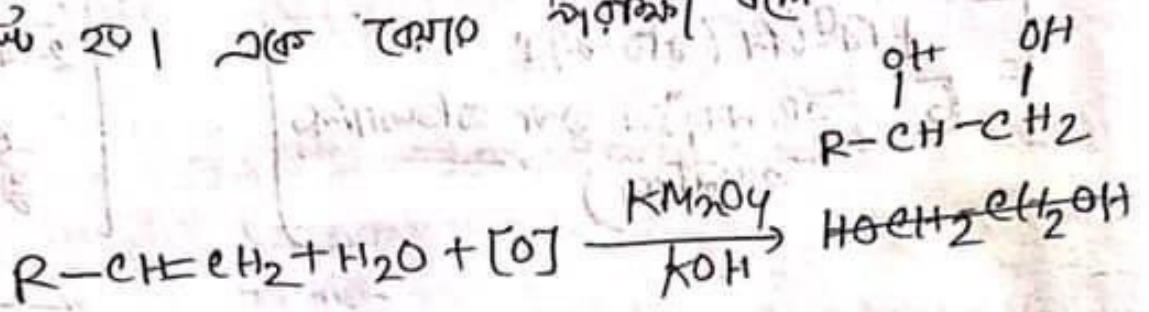 হয়। একে বেয়ার পরীক্ষা বলে
OH OH
R-CH-CH2
R-CH=CH2+H2O+[O] KMnO4 HOCH2CH2OH
KOH